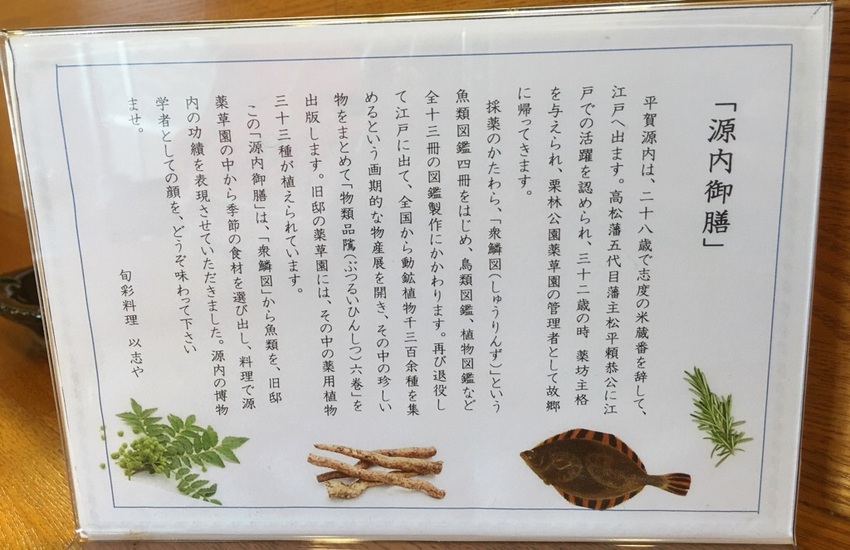 「源内御膳」
平賀源内は、二十八歳で志度の米蔵番を辞して、
江戸へ出ます。高松藩五代目藩主松平頼恭公に江
戸での活躍を認められ、三十二歳の時 薬坊主格
を与えられ、栗林公園薬草園の管理者として故郷
に帰ってきます。
採薬のかたわら、「衆鱗図(しゅうりんず)」という
魚類図鑑四冊をはじめ、鳥類図鑑、植物図鑑など
全十三冊の図鑑製作にかかわります。再び退役し
て江戸に出て、全国から動鉱植物千三百余種を集
めるという画期的な物産展を開き、その中の珍しい
物をまとめて「物類品隲(ぶつるいひんしつ)六巻」を
出版します。旧邸の薬草園には、その中の薬用植物
三十三種が植えられています。
この「源内御膳」は、「衆鱗図」から魚類を、旧邸
薬草園の中から季節の食材を選び出し、料理で源
内の功績を表現させていただきました。源内の博物
学者としての顔を、どうぞ味わって下さい
ませ。
旬彩料理 以志や